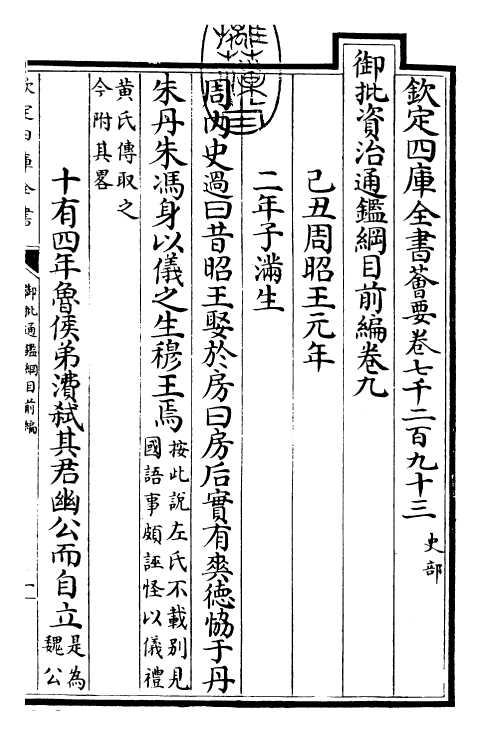 欽定四庫全書薈要卷七千二百九十三
史部
御批資治通鑑綱目前編卷九
己丑周昭王元年
二年子滿生
周內史過曰昔昭王娶於房曰房后實有爽德協于丹
朱丹朱馮身以儀之生穆王焉
按此說左氏不載別見
國語事頗誣怪以儀禮
黃氏傳取之
今附其畧
十有四年魯侯弟㵒弑其君幽公而自立
是為
魏公
欽定四庫全書
御批通鑑綱目前編
一